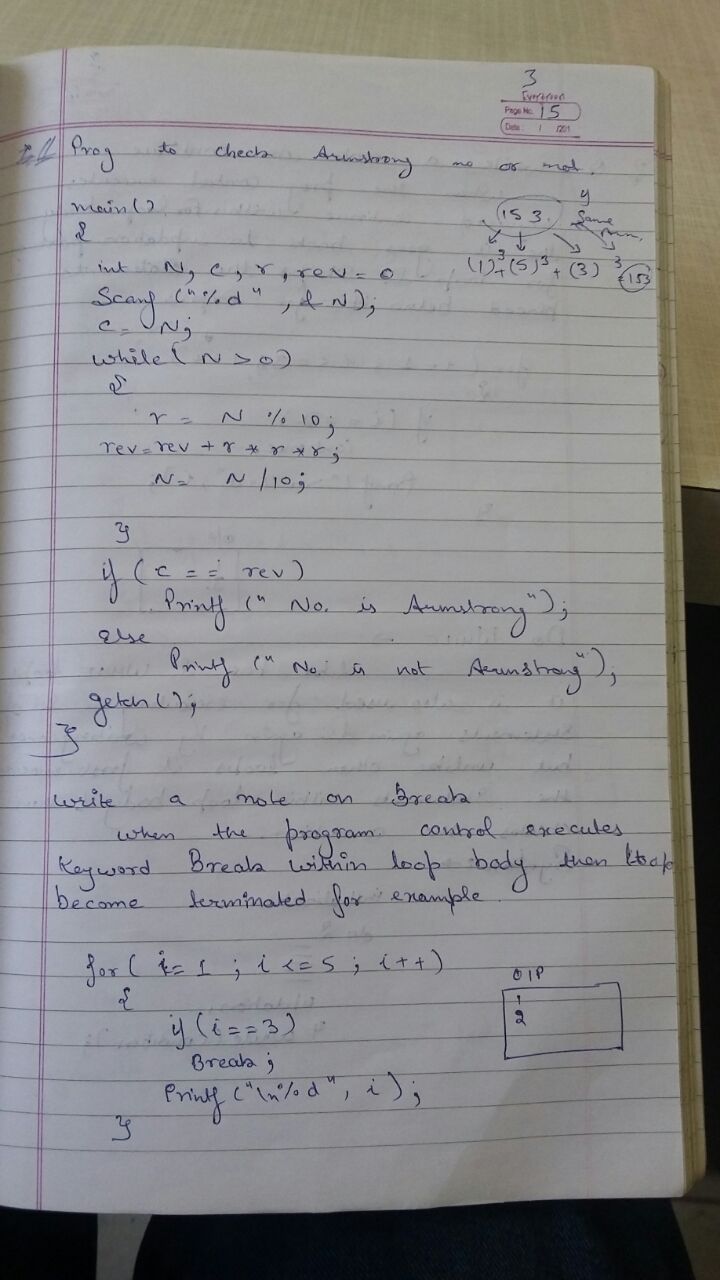 3
Evergreen
Page No. 15
Date: / /201
Prog to check Armstrong no or not.
main()
{
int N, c, r, rev = 0
Scanf ("%d", & N);
c = N;
while( N > 0)
{
r = N % 10;
rev = rev + r * r * r;
N = N /10;
}
if (c == rev)
Printf (" No. is Armstrong");
else
Printf (" No. is not Armstrong");
getch();
}
if
153. Same
num.
(1)³ + (5)³ + (3)³ = 153
Write a note on Break
when the program control executes
Keyword Break within loop body then loop
become terminated for example.
for( i= 1 ; i <= 5 ; i++)
{
if (i==3)
Break;
Printf ("\n%d", i);
}
O/P
1
2